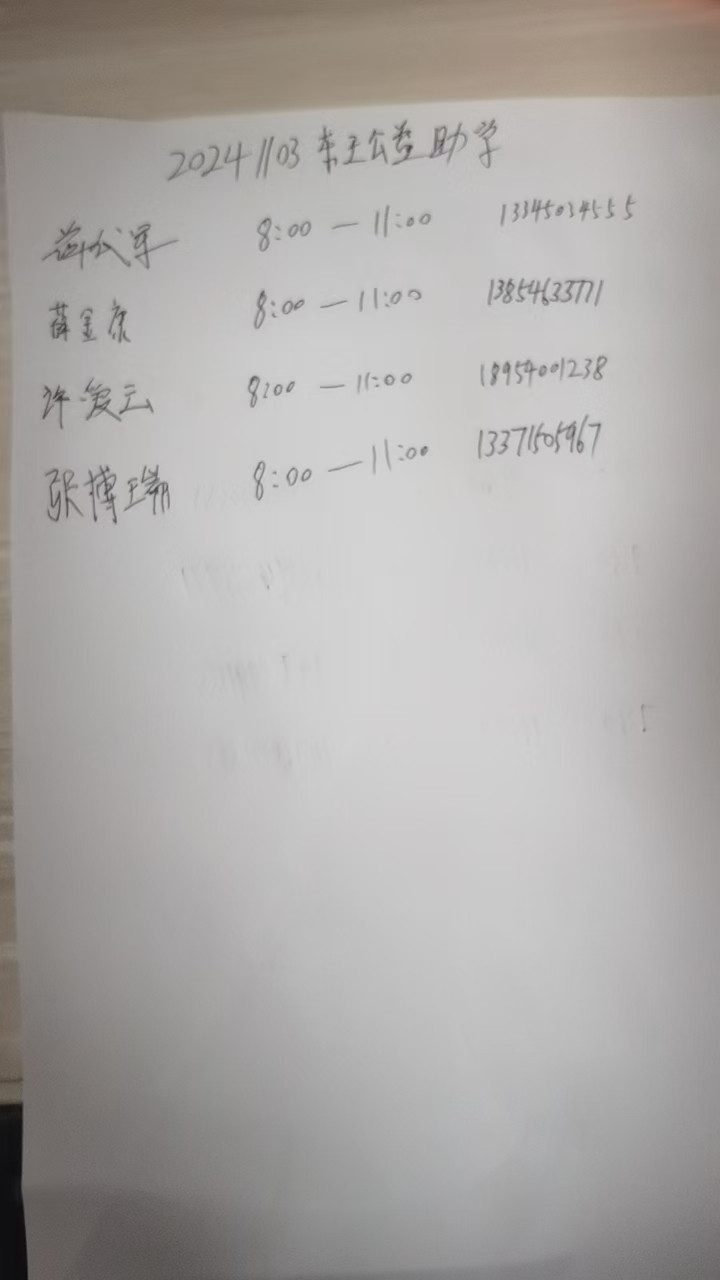 20241103 东王公益助学
8:00 — 11:00 13345034555
薛金康 8:00 — 11:00 13854633771
许爱云 8:00 — 11:00 18954001238
张博瑞 8:00 — 11:00 13371505967